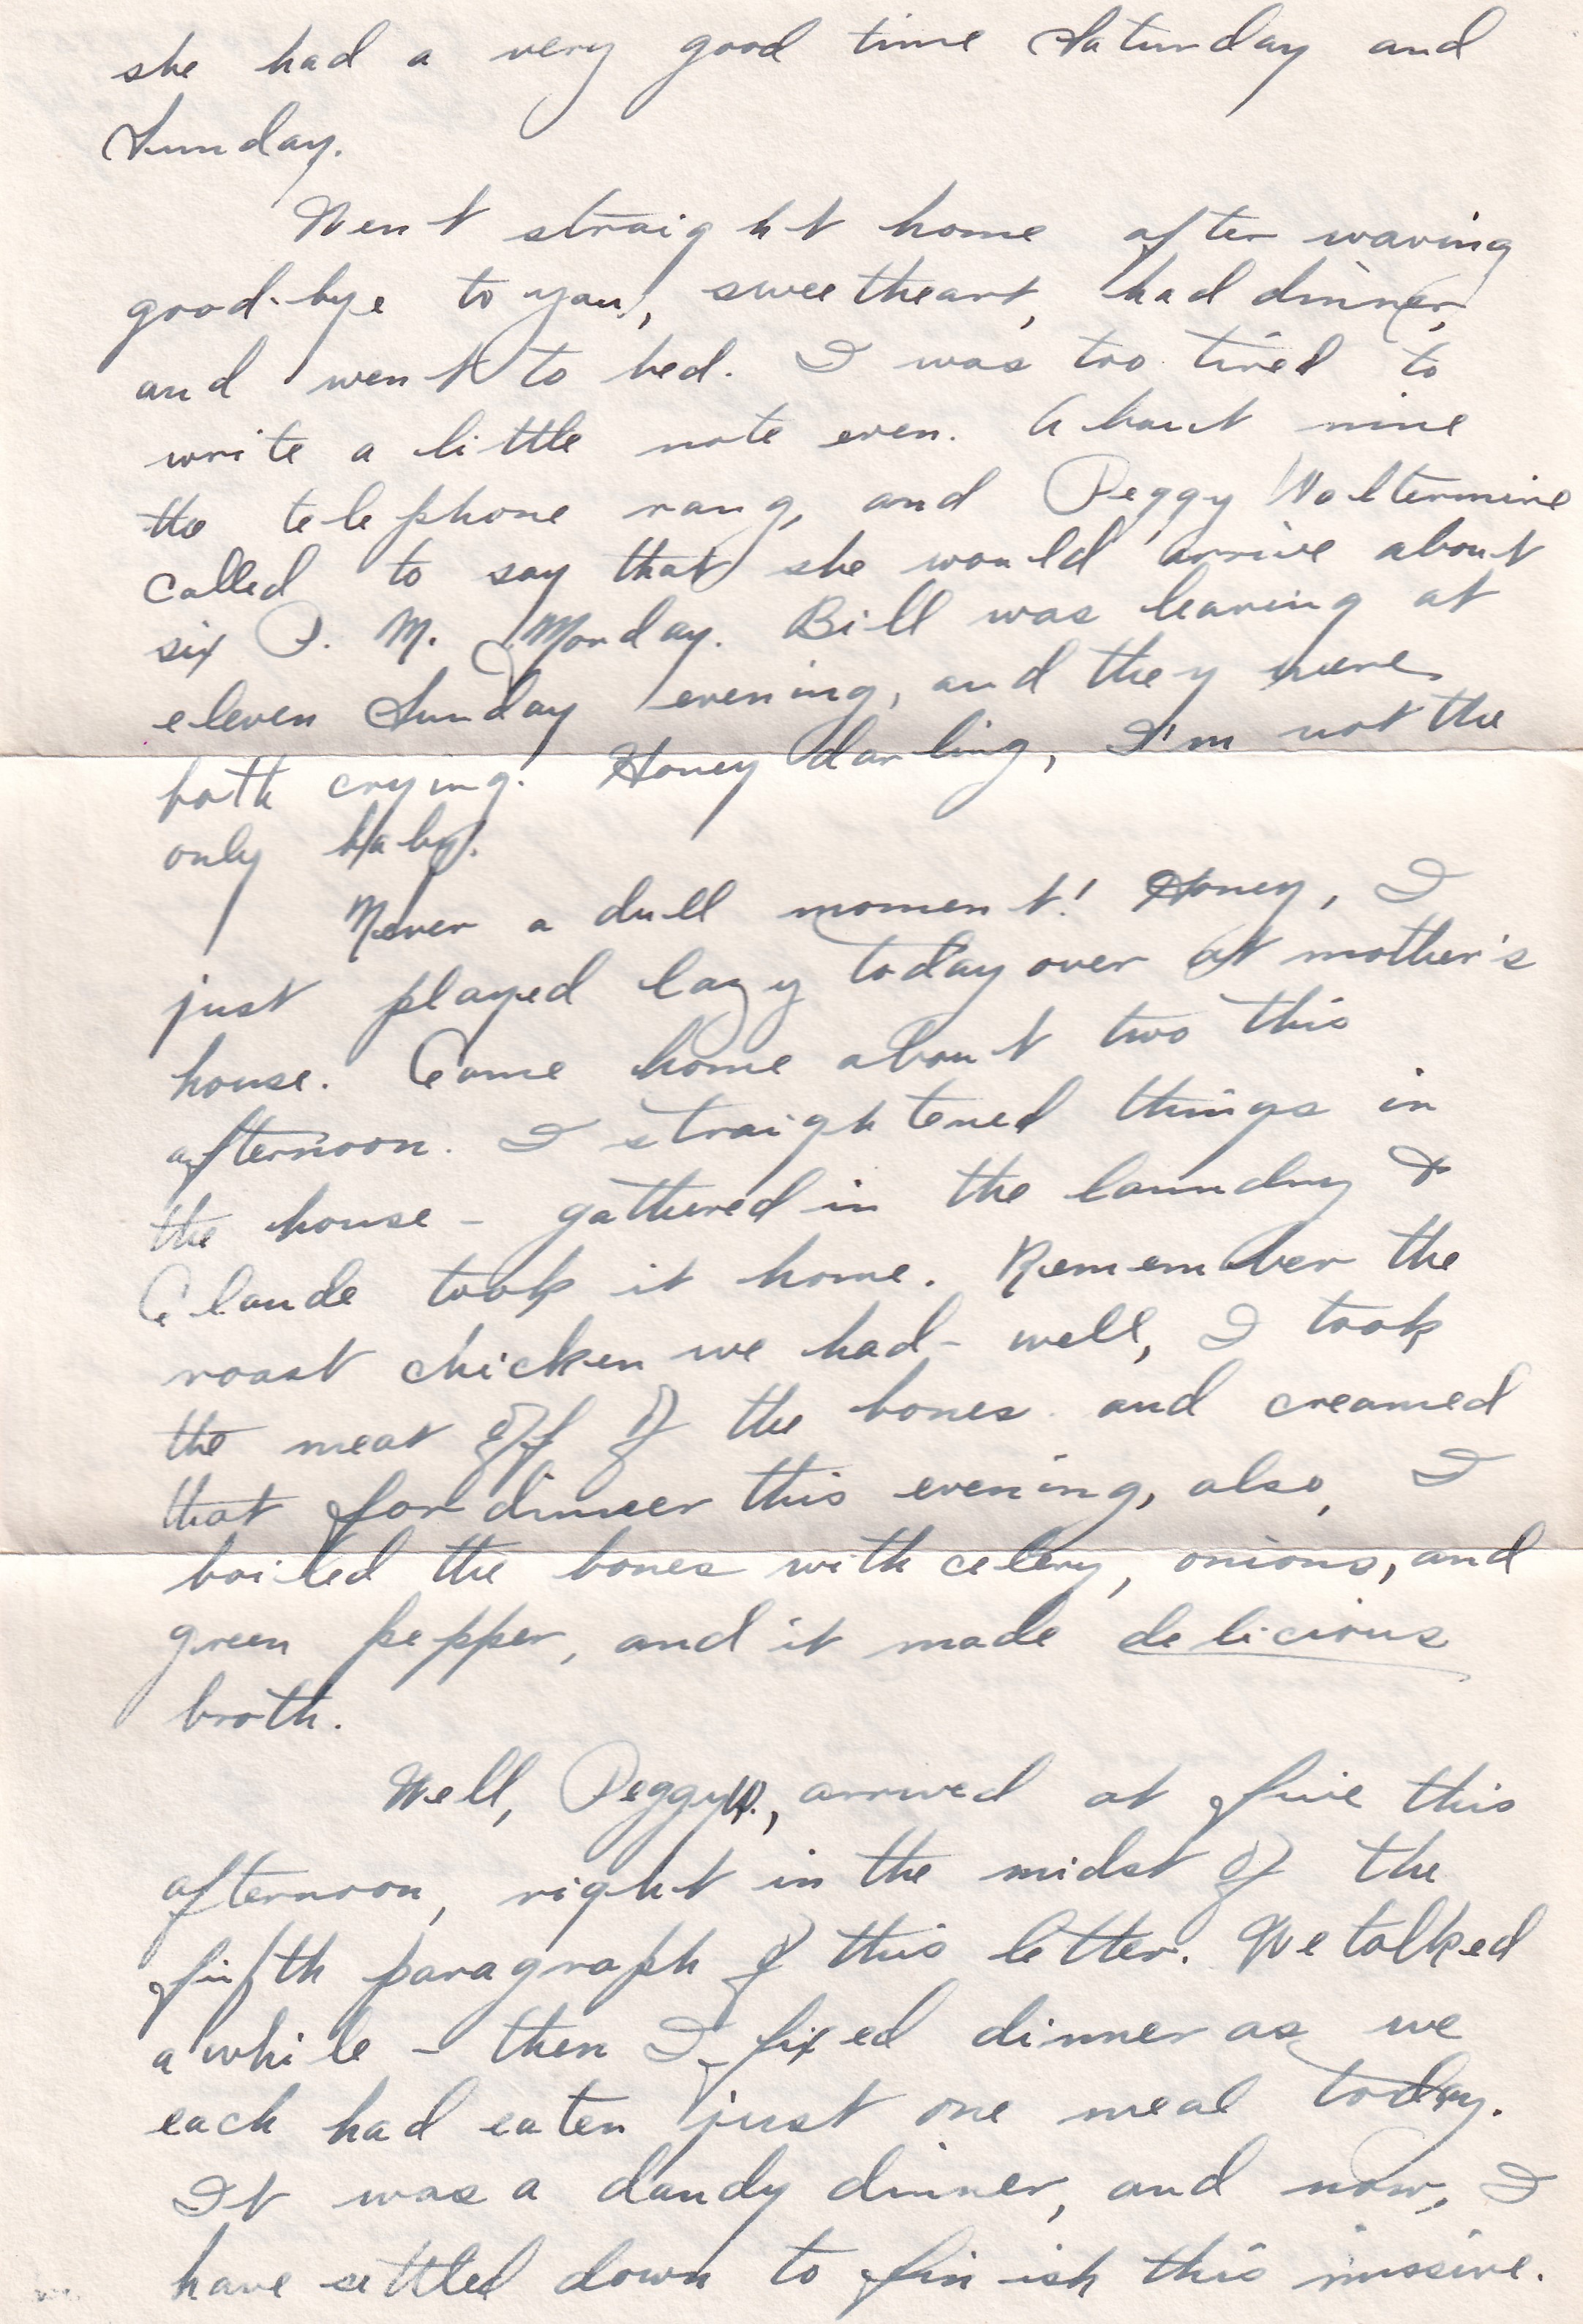 she had a very good time Saturday and
Sunday.
Went straight home after waving
good-bye to you, sweetheart, had dinner,
and went to bed. I was too tired to
write a little note even. About nine
the telephone rang, and Peggy Woltermire
called to say that she would arrive about
six P. M. Monday. Bill was leaving at
eleven Sunday evening, and they were
both crying. Honey darling, I'm not the
only baby.
Never a dull moment! Honey, I
just played lazy today over at mother's
house. Came home about two this
afternoon. I straightened things in
the house - gathered in the laundry &
Claude took it home. Remember the
roast chicken we had - well, I took
the meat off of the bones and creamed
that for dinner this evening, also, I
boiled the bones with celery, onions, and
green pepper, and it made delicious
broth.
Well, Peggy W., arrived at five this
afternoon, right in the midst of the
fifth paragraph of this letter. We talked
awhile - then I fixed dinner as we
each had eaten just one meal today.
It was a dandy dinner, and now, I
have settled down to finish this missive.